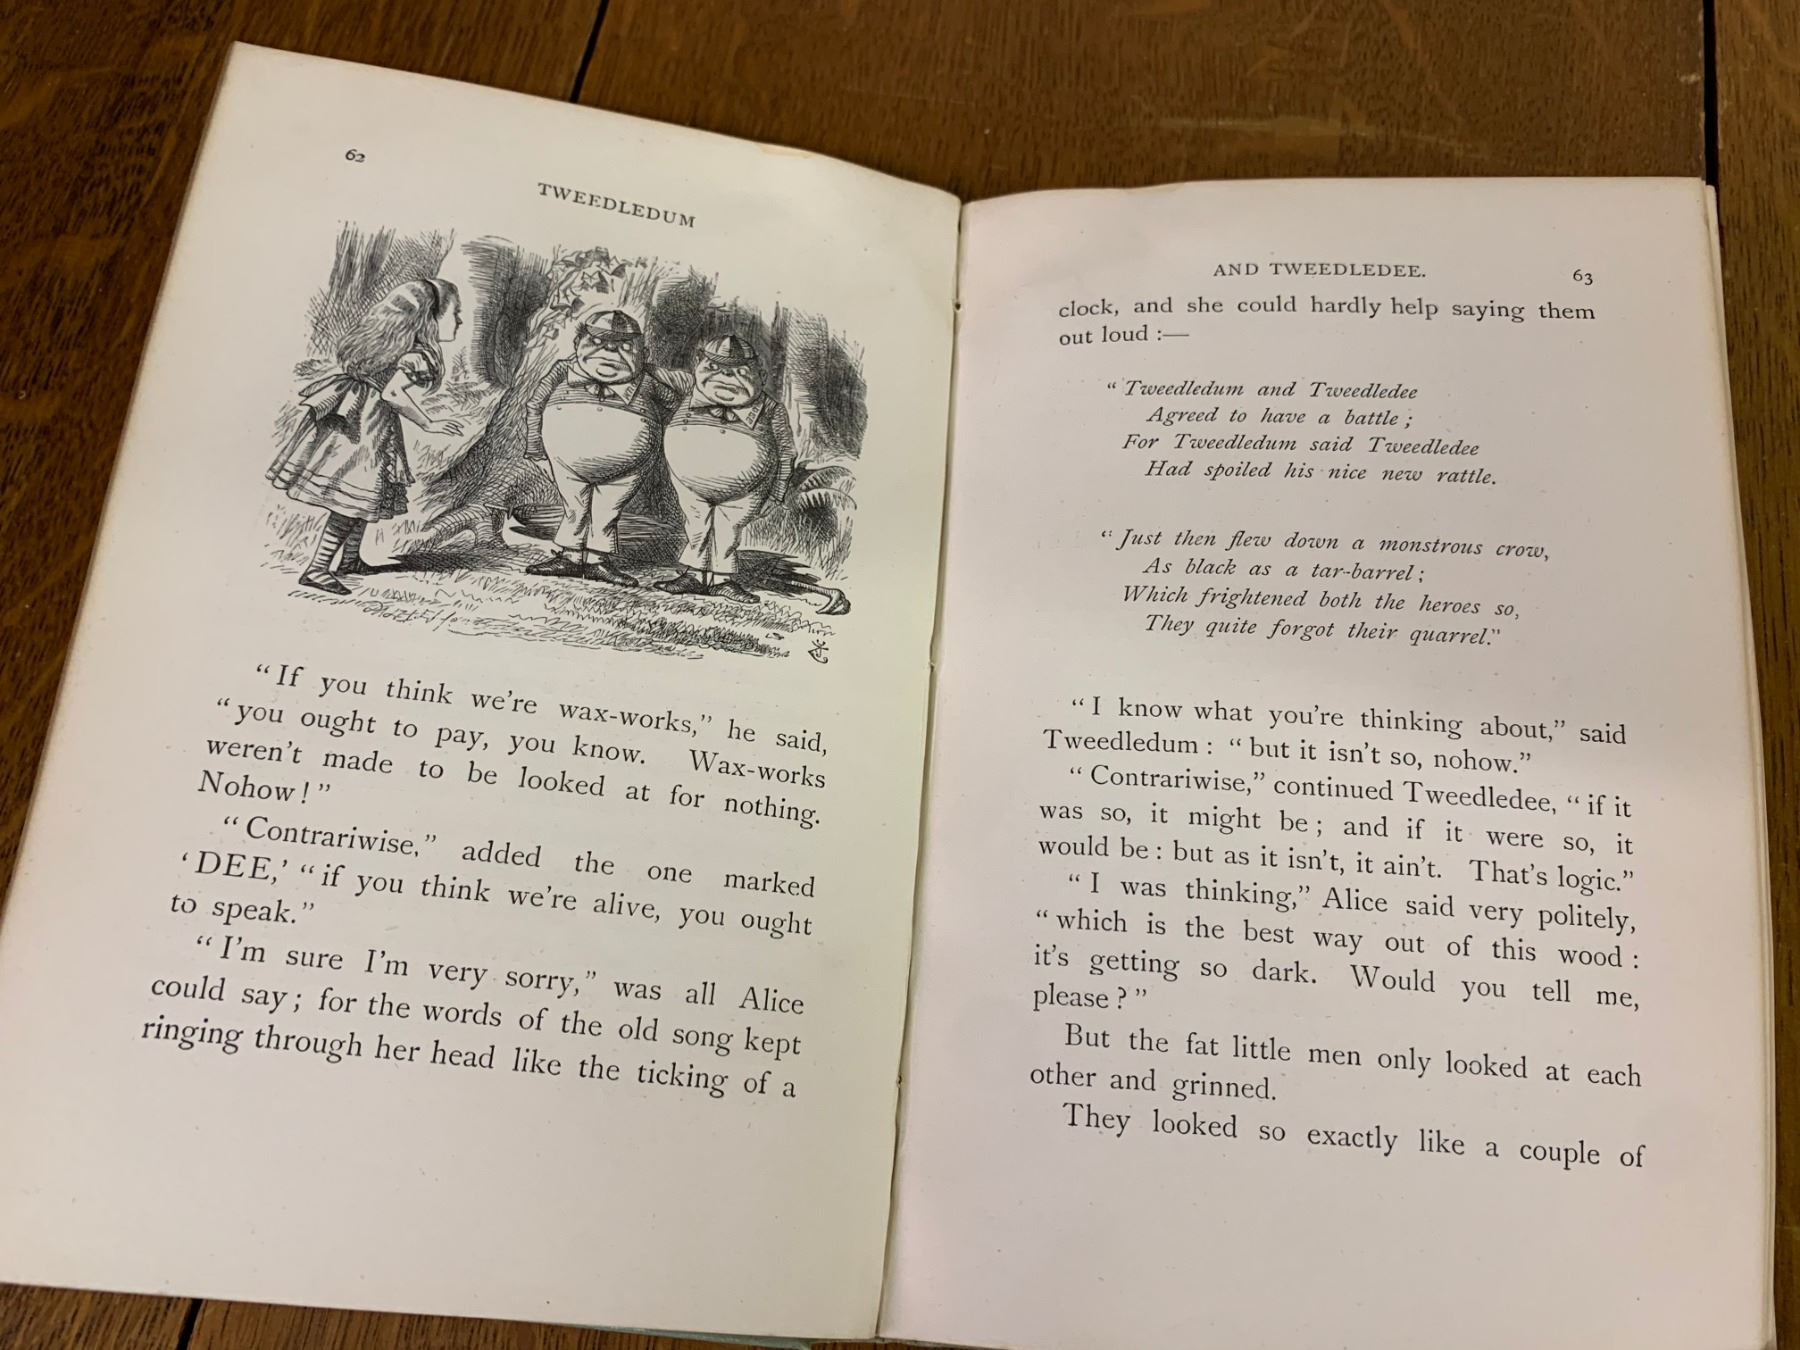 62
TWEEDLEDUM
“If you think we’re wax-works,” he said,
“you ought to pay, you know. Wax-works
weren’t made to be looked at for nothing.
Nohow!”
“Contrariwise,” added the one marked
‘DEE,’ “if you think we’re alive, you ought
to speak.”
“I’m sure I’m very sorry,” was all Alice
could say; for the words of the old song kept
ringing through her head like the ticking of a
AND TWEEDLEDEE. 63
clock, and she could hardly help saying them
out loud :—
“Tweedledum and Tweedledee
Agreed to have a battle;
For Tweedledum said Tweedledee
Had spoiled his nice new rattle.
“Just then flew down a monstrous crow,
As black as a tar-barrel;
Which frightened both the heroes so,
They quite forgot their quarrel.”
“I know what you’re thinking about,” said
Tweedledum: “but it isn’t so, nohow.”
“Contrariwise,” continued Tweedledee, “if it
was so, it might be; and if it were so, it
would be: but as it isn’t, it ain’t. That’s logic.”
“I was thinking,” Alice said very politely,
“which is the best way out of this wood:
it’s getting so dark. Would you tell me,
please?”
But the fat little men only looked at each
other and grinned.
They looked so exactly like a couple of